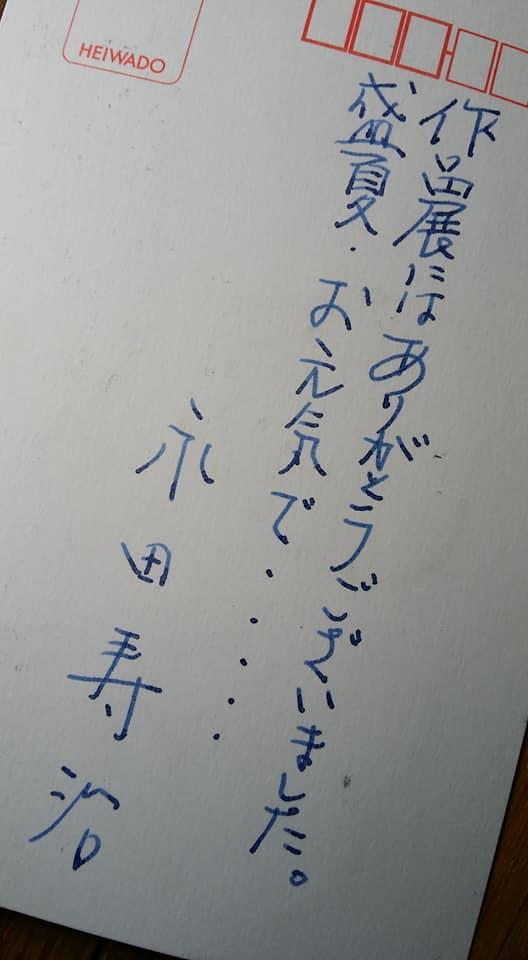 HEIWADO
作品展にはありがとうございました。
盛夏.お元気で....
永田寿治